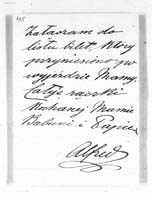 Załączam do
listu bilet, który
przyniesiono po
wyjeździe Mamy.
Całuję rączki
Kochanej Mamie
Babuni i Papie
Alfred